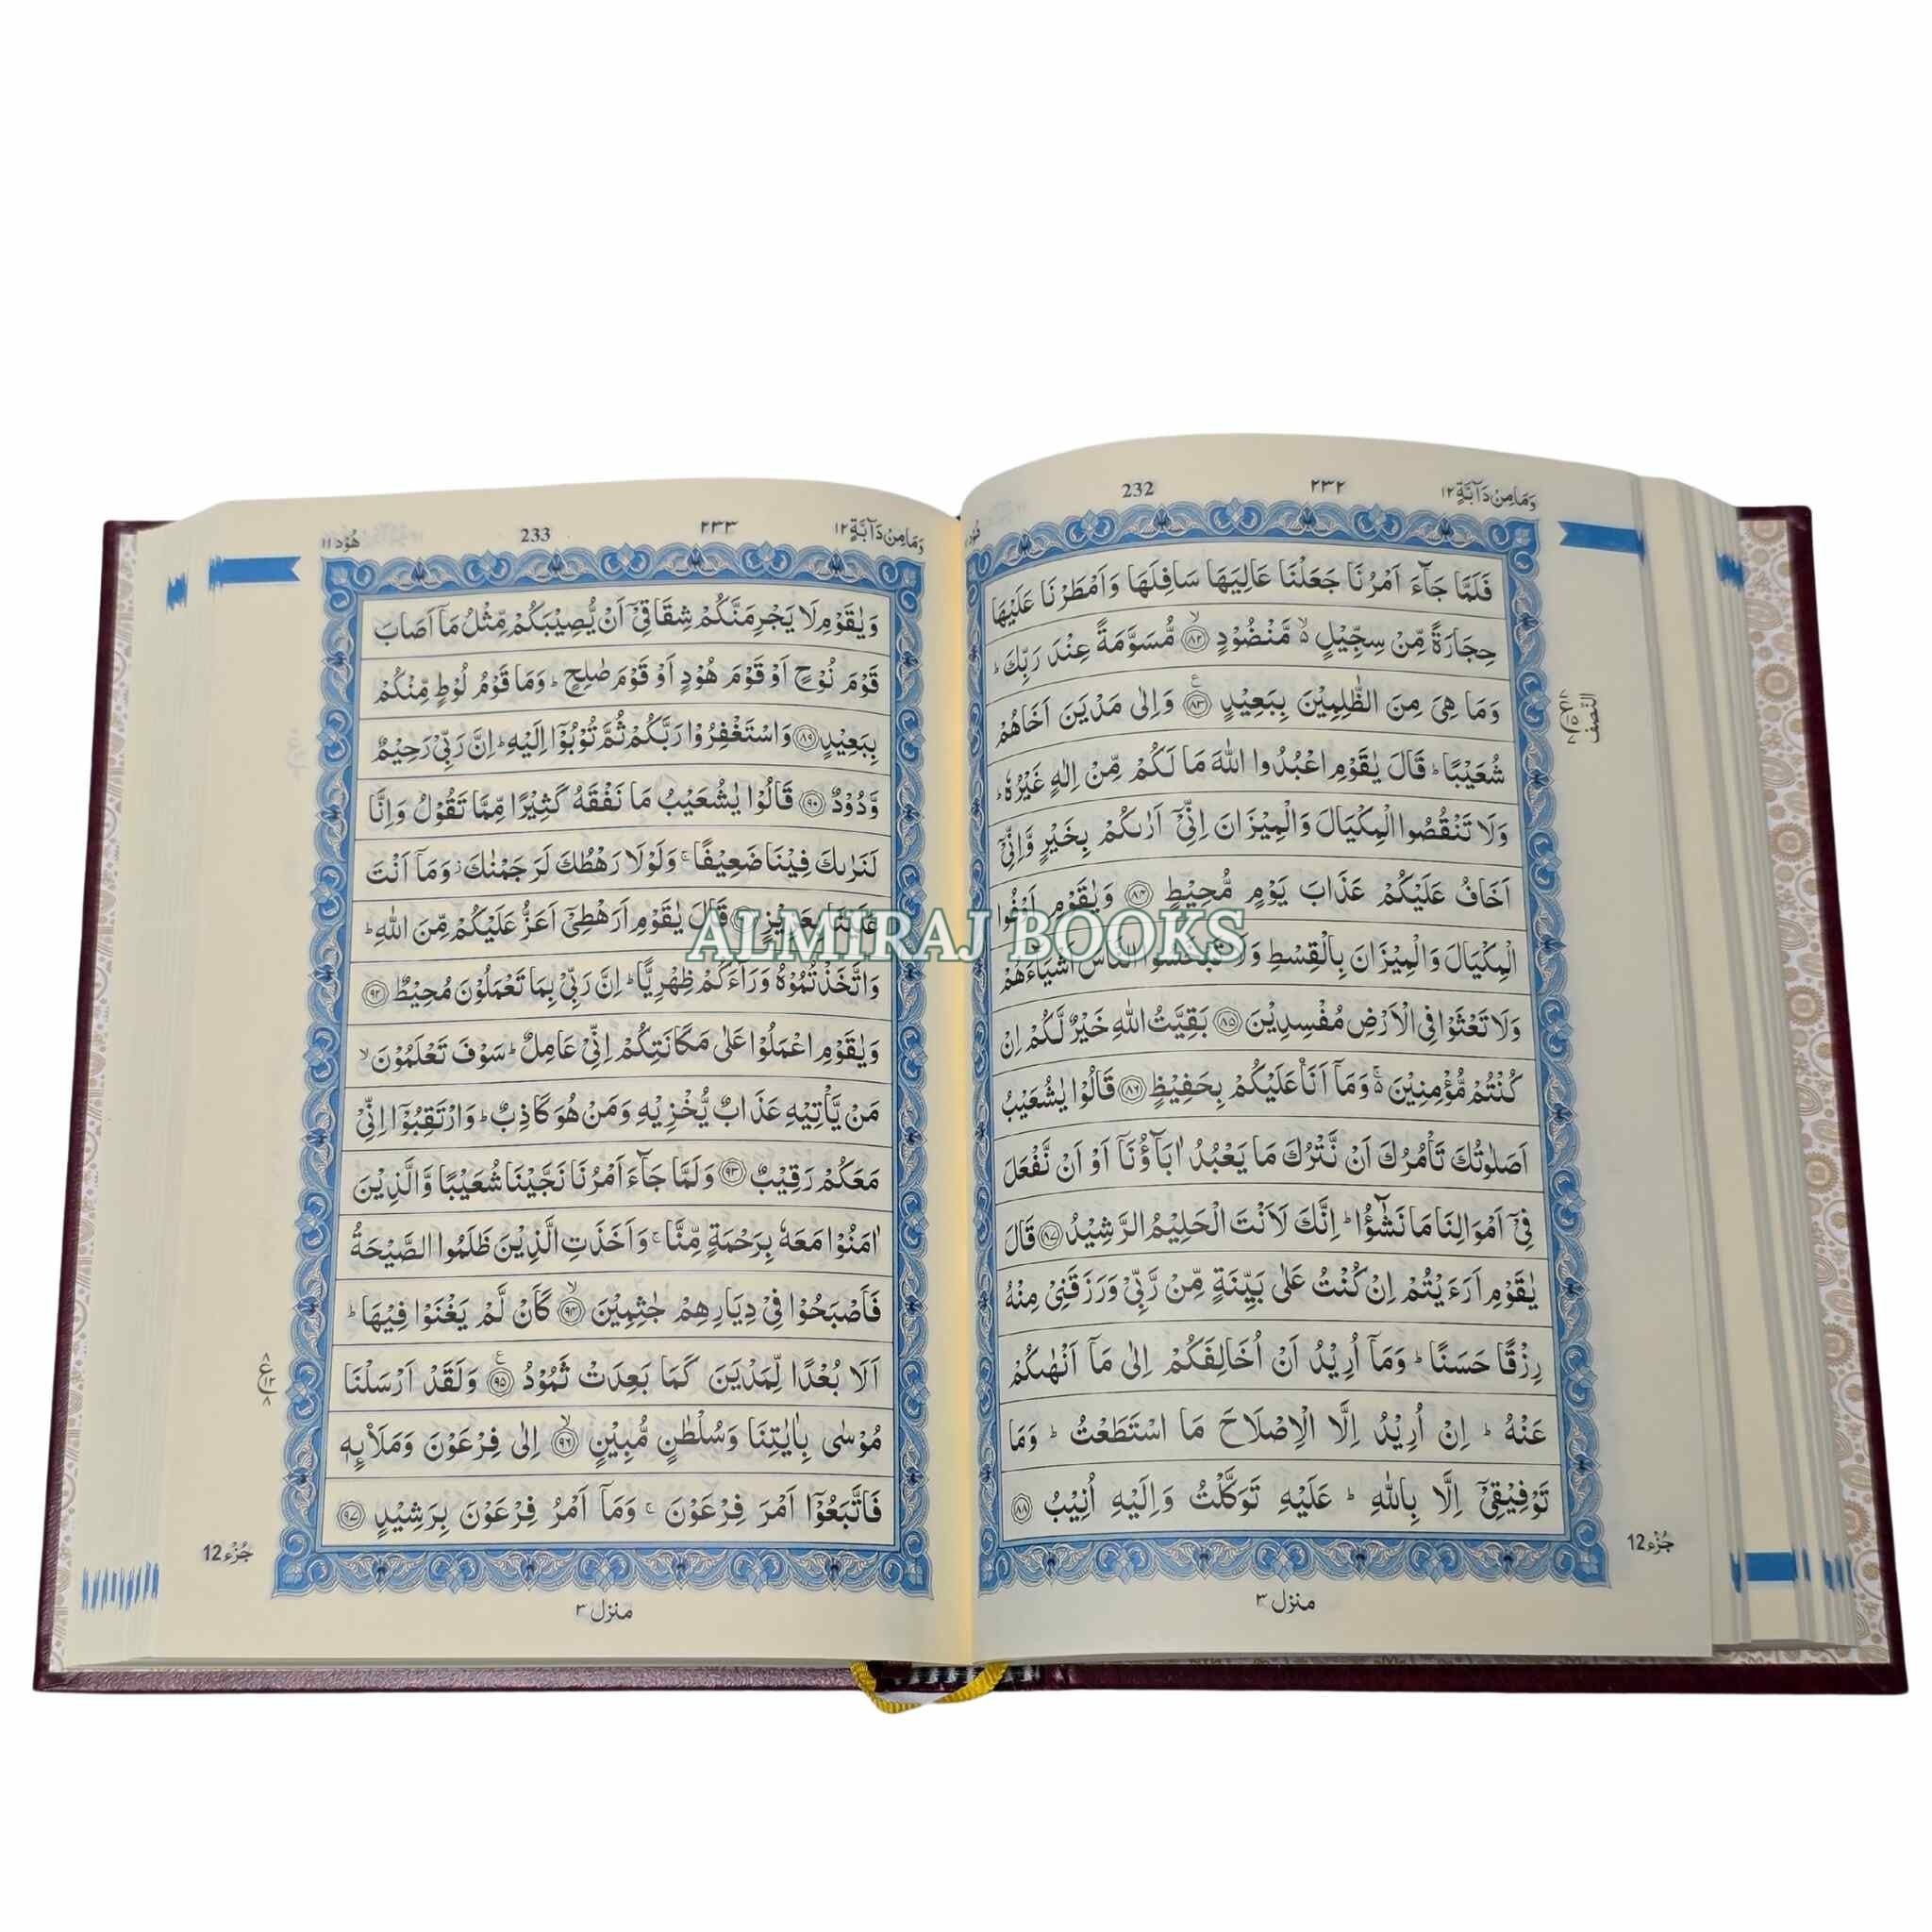 وَمَا مِنْ دَآبَّةٍ ١٢
٢٣٢
232
فَلَمَّا جَآءَ اَمْرُنَا جَعَلْنَا عَالِيَهَا سَافِلَهَا وَاَمْطَرْنَا عَلَيْهَا
حِجَارَةً مِّنْ سِجِّيْلٍ ۙ مَّنْضُوْدٍ ۙ ﴿٨٢﴾ مُّسَوَّمَةً عِنْدَ رَبِّكَ ؕ
وَمَا هِيَ مِنَ الظّٰلِمِيْنَ بِبَعِيْدٍ ﴿٨٣﴾ ع وَاِلٰى مَدْيَنَ اَخَاهُمْ
شُعَيْبًا ؕ قَالَ يٰقَوْمِ اعْبُدُوا اللّٰهَ مَا لَكُمْ مِّنْ اِلٰهٍ غَيْرُهٗ ؕ
وَلَا تَنْقُصُوا الْمِكْيَالَ وَالْمِيْزَانَ اِنِّيْٓ اَرٰىكُمْ بِخَيْرٍ وَّاِنِّيْٓ
اَخَافُ عَلَيْكُمْ عَذَابَ يَوْمٍ مُّحِيْطٍ ﴿٨٤﴾ وَيٰقَوْمِ اَوْفُوا
الْمِكْيَالَ وَالْمِيْزَانَ بِالْقِسْطِ وَلَا تَبْخَسُوا النَّاسَ اَشْيَآءَهُمْ
وَلَا تَعْثَوْا فِي الْاَرْضِ مُفْسِدِيْنَ ﴿٨٥﴾ بَقِيَّتُ اللّٰهِ خَيْرٌ لَّكُمْ اِنْ
كُنْتُمْ مُّؤْمِنِيْنَ ۚ۬ وَمَآ اَنَا عَلَيْكُمْ بِحَفِيْظٍ ﴿٨٦﴾ قَالُوْا يٰشُعَيْبُ
اَصَلٰوتُكَ تَاْمُرُكَ اَنْ نَّتْرُكَ مَا يَعْبُدُ اٰبَآؤُنَآ اَوْ اَنْ نَّفْعَلَ
فِيْٓ اَمْوَالِنَا مَا نَشٰٓؤُا ؕ اِنَّكَ لَاَنْتَ الْحَلِيْمُ الرَّشِيْدُ ﴿٨٧﴾ قَالَ
يٰقَوْمِ اَرَءَيْتُمْ اِنْ كُنْتُ عَلٰى بَيِّنَةٍ مِّنْ رَّبِّيْ وَرَزَقَنِيْ مِنْهُ
رِزْقًا حَسَنًا ؕ وَمَآ اُرِيْدُ اَنْ اُخَالِفَكُمْ اِلٰى مَآ اَنْهٰىكُمْ
عَنْهُ ؕ اِنْ اُرِيْدُ اِلَّا الْاِصْلَاحَ مَا اسْتَطَعْتُ ؕ وَمَا
تَوْفِيْقِيْٓ اِلَّا بِاللّٰهِ ؕ عَلَيْهِ تَوَكَّلْتُ وَاِلَيْهِ اُنِيْبُ ﴿٨٨﴾
النّصف
جُزْء 12
منزل ٣
وَمَا مِنْ دَآبَّةٍ ١٢
٢٣٣
233
هُوْد ١١
وَيٰقَوْمِ لَا يَجْرِمَنَّكُمْ شِقَاقِيْٓ اَنْ يُّصِيْبَكُمْ مِّثْلُ مَآ اَصَابَ
قَوْمَ نُوْحٍ اَوْ قَوْمَ هُوْدٍ اَوْ قَوْمَ صٰلِحٍ ؕ وَمَا قَوْمُ لُوْطٍ مِّنْكُمْ
بِبَعِيْدٍ ﴿٨٩﴾ وَاسْتَغْفِرُوْا رَبَّكُمْ ثُمَّ تُوْبُوْٓا اِلَيْهِ ؕ اِنَّ رَبِّيْ رَحِيْمٌ
وَّدُوْدٌ ﴿٩٠﴾ قَالُوْا يٰشُعَيْبُ مَا نَفْقَهُ كَثِيْرًا مِّمَّا تَقُوْلُ وَاِنَّا
لَنَرٰىكَ فِيْنَا ضَعِيْفًا ۚ وَلَوْلَا رَهْطُكَ لَرَجَمْنٰكَ ؗ وَمَآ اَنْتَ
عَلَيْنَا بِعَزِيْزٍ قَالَ يٰقَوْمِ اَرَهْطِيْٓ اَعَزُّ عَلَيْكُمْ مِّنَ اللّٰهِ ؕ
وَاتَّخَذْتُمُوْهُ وَرَآءَكُمْ ظِهْرِيًّا ؕ اِنَّ رَبِّيْ بِمَا تَعْمَلُوْنَ مُحِيْطٌ ﴿٩٢﴾
وَيٰقَوْمِ اعْمَلُوْا عَلٰى مَكَانَتِكُمْ اِنِّيْ عَامِلٌ ؕ سَوْفَ تَعْلَمُوْنَ ۙ
مَنْ يَّاْتِيْهِ عَذَابٌ يُّخْزِيْهِ وَمَنْ هُوَ كَاذِبٌ ؕ وَارْتَقِبُوْٓا اِنِّيْ
مَعَكُمْ رَقِيْبٌ ﴿٩٣﴾ وَلَمَّا جَآءَ اَمْرُنَا نَجَّيْنَا شُعَيْبًا وَّالَّذِيْنَ
اٰمَنُوْا مَعَهٗ بِرَحْمَةٍ مِّنَّا ۚ وَاَخَذَتِ الَّذِيْنَ ظَلَمُوا الصَّيْحَةُ
فَاَصْبَحُوْا فِيْ دِيَارِهِمْ جٰثِمِيْنَ ۙ ﴿٩٤﴾ كَاَنْ لَّمْ يَغْنَوْا فِيْهَا ؕ
اَلَا بُعْدًا لِّمَدْيَنَ كَمَا بَعِدَتْ ثَمُوْدُ ﴿٩٥﴾ ع وَلَقَدْ اَرْسَلْنَا
مُوْسٰى بِاٰيٰتِنَا وَسُلْطٰنٍ مُّبِيْنٍ ۙ ﴿٩٦﴾ اِلٰى فِرْعَوْنَ وَمَلَا۟ئِهٖ
فَاتَّبَعُوْٓا اَمْرَ فِرْعَوْنَ ۚ وَمَآ اَمْرُ فِرْعَوْنَ بِرَشِيْدٍ ﴿٩٧﴾
جُزْء 12
منزل ٣
ALMIRAJ BOOKS